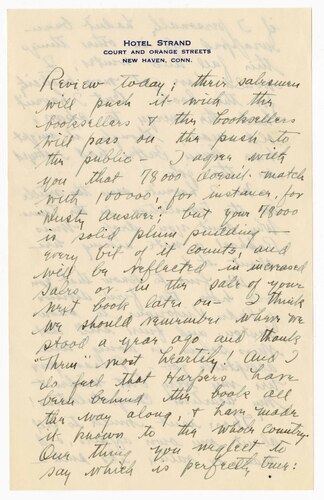 HOTEL STRAND
COURT AND ORANGE STREETS
NEW HAVEN, CONN.
Review today; their salesmen
will push it with the
booksellers & the booksellers
will pass on the push to
the public – I agree with
you that 78000 doesn't match
with 100000, for instance, for
"Dusty Answer"; but your 78000
is solid plum pudding –
every bit of it counts, and
will be reflected in increased
sales or in the sale of your
next book later on – I think
we should remember where we
stood a year ago and thank
"Them" most heartily! And I
do feel that Harpers have
been behind the book all
the way along, & have made
it known to the whole country.
One thing you neglect to
say which is perfectly true: